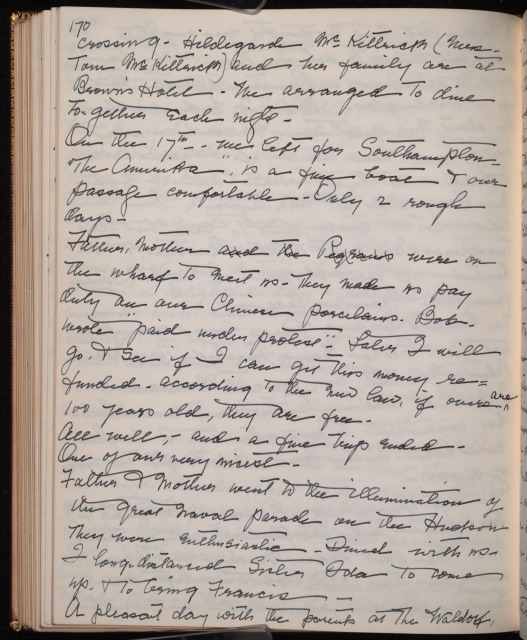 170
crossing - Hildegarde McKittrick (Mrs.
Tom McKittrick) and her family are at
Brown's Hotel - We arranged to dine
together each night -
On the 17th - we left for Southampton -
"The Amerika", is a fine boat & our
passage comfortable - Only 2 rough
days -
Father, Mother and the Pegrams were on
the wharf to meet us - They made us pay
duty on our Chinese porcelains. Bob -
wrote "paid under protest" - Later I will
go, & see if I can get this money re=
funded - according to the new law, if ours are
100 years old, they are free -
All well, - and a fine trip ended -
One of our very nicest -
Father & Mother went to the illumination of
the great Naval parade on the Hudson
They were enthusiastic - Dined with us -
I long distanced Sister Ida to come
up - & to bring Francis -
A pleasant day with the parents at the Waldorf,